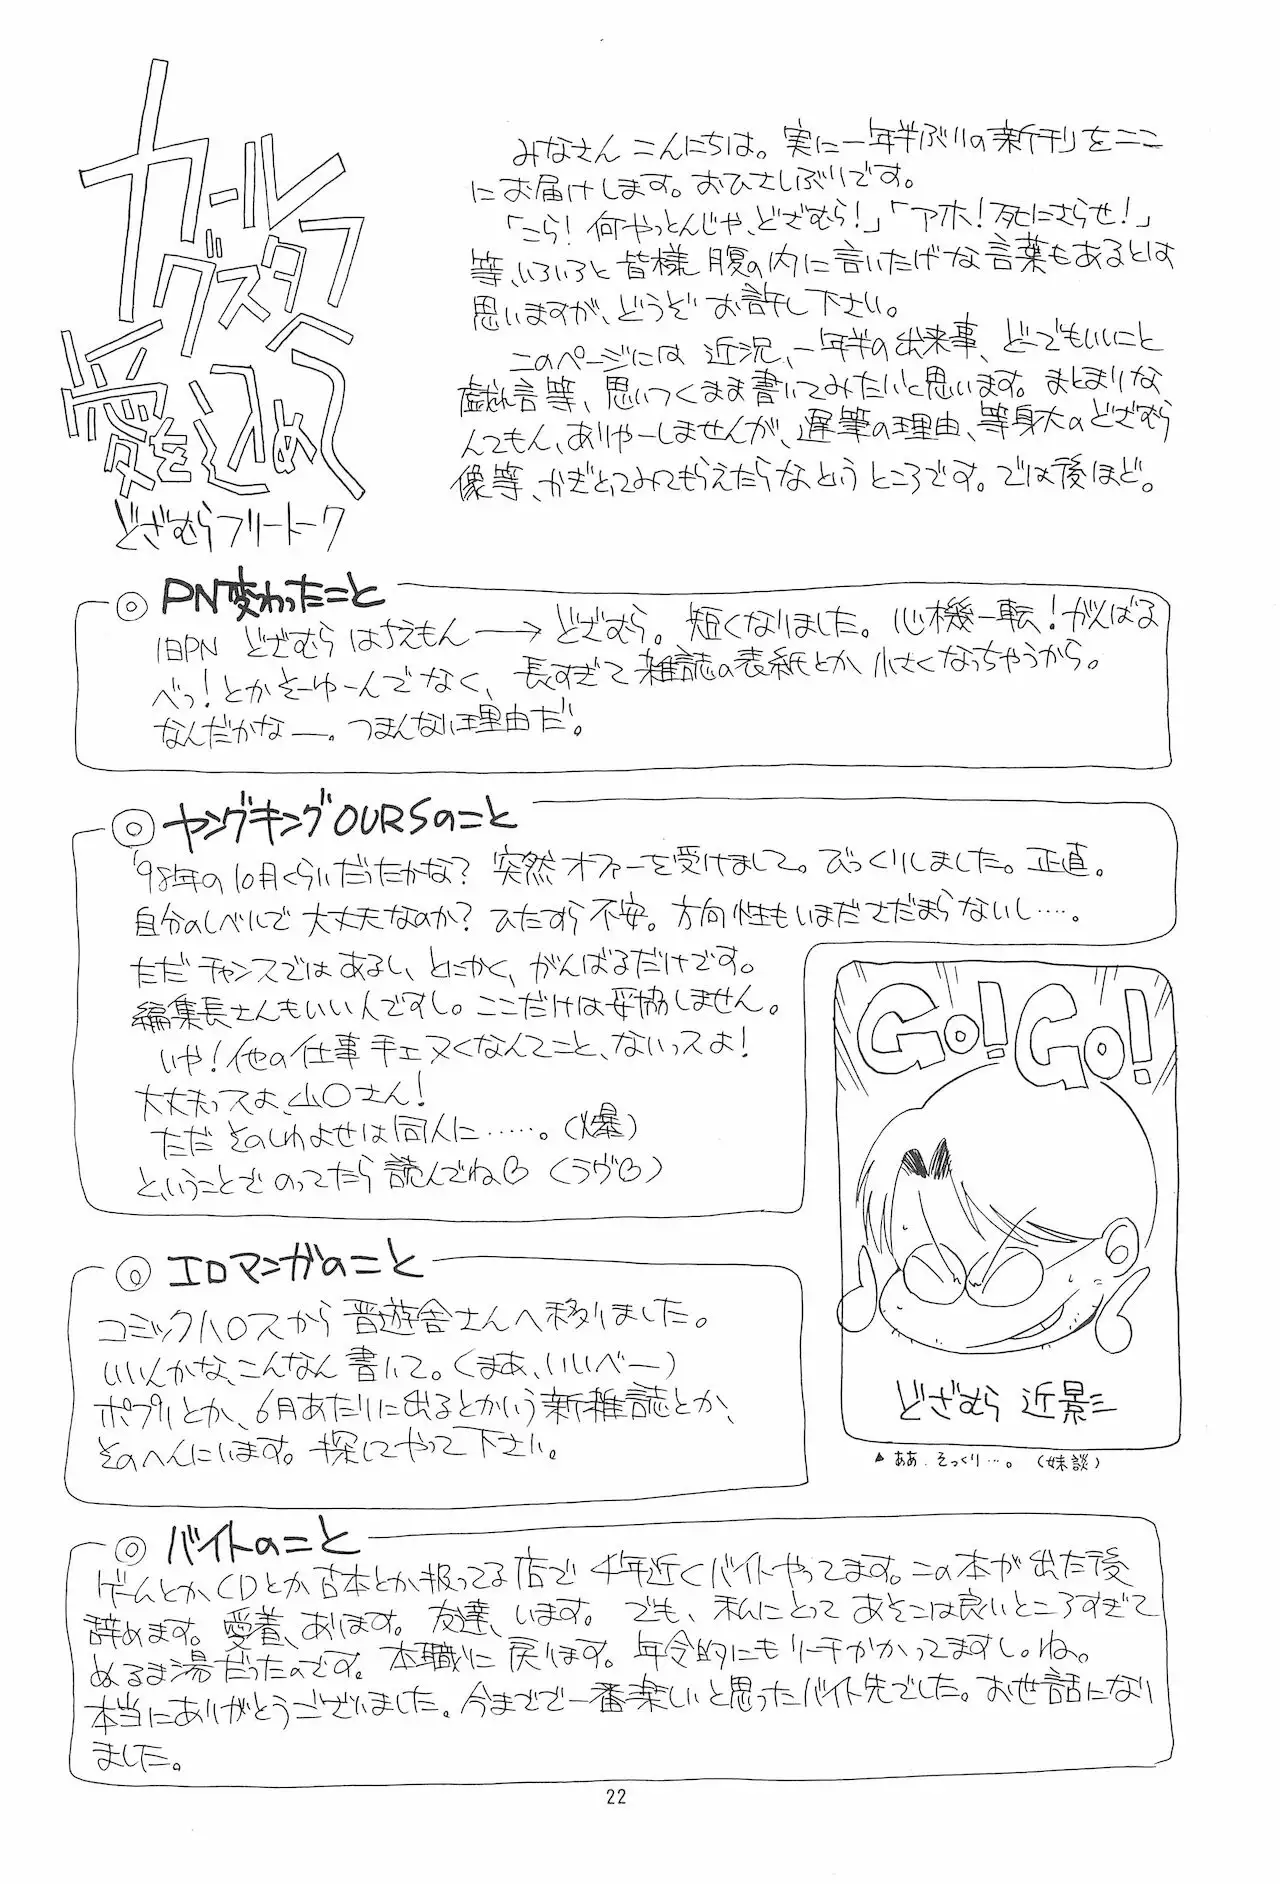 カール
グスタフへ
愛を込めて
どざむらフリートーク
みなさん こんにちは。実に一年半ぶりの新刊をここ
にお届けします。おひさしぶりです。
「こら！何やっとんじゃ、どざむら！」「アホ！死にさらせ！」
等、いろいろと皆様 腹の内に言いたげな言葉もあるとは
思いますが、どうぞ お許し下さい。
このページには 近況、一年半の出来事、どーでもいいこと
戯れ言等、思いつくまま書いてみたいと思います。まとまりな
んてもん、ありゃーしませんが、遅筆の理由、等身大のどざむら
像等、かぎとってみてもらえたらなというところです。では後ほど。
◎ PN変わったこと
旧PN どざむら はちえもん ─→ どざむら。短くなりました。心機一転！がんばる
べっ！とかそーゆーんでなく、長すぎて雑誌の表紙とか小さくなっちゃうから。
なんだかなー。つまんない理由だ。
◎ ヤングキングOURSのこと
'98年の10月くらいだったかな？突然オファーを受けまして。びっくりしました。正直。
自分のレベルで大丈夫なのか？ひたすら不安。方向性もいまださだまらないし‥‥。
ただチャンスではあるし、とにかく、がんばるだけです。
編集長さんもいい人ですし。ここだけは妥協しません。
いや！他の仕事手ェヌくなんてこと、ないっスよ！
大丈夫っスよ、山〇さん！
ただ そのしわよせは同人に‥‥‥。（爆）
と、いうことで のってたら読んでね♡（ラヴ♡）
GO! GO!
どざむら 近影
▲ ああ、そっくり…。（妹談）
◎ エロマンガのこと
コミックハ〇スから晋遊舎さんへ移りました。
いいんかな、こんなん書いて。（まあ、いいべー）
ポプリとか、6月あたりに出るとかいう新雑誌とか、
そのへんにいます。探してやって下さい。
◎ バイトのこと
ゲームとかCDとか古本とか扱ってる店で4年近くバイトやってます。この本が出た後
辞めます。愛着、あります。友達、います。でも、私にとってあそこは良いところすぎて
ぬるま湯だったのです。本職に戻ります。年令的にもリーチかかってますし。ね。
本当にありがとうございました。今までで一番楽しいと思ったバイト先でした。お世話になり
ました。
22